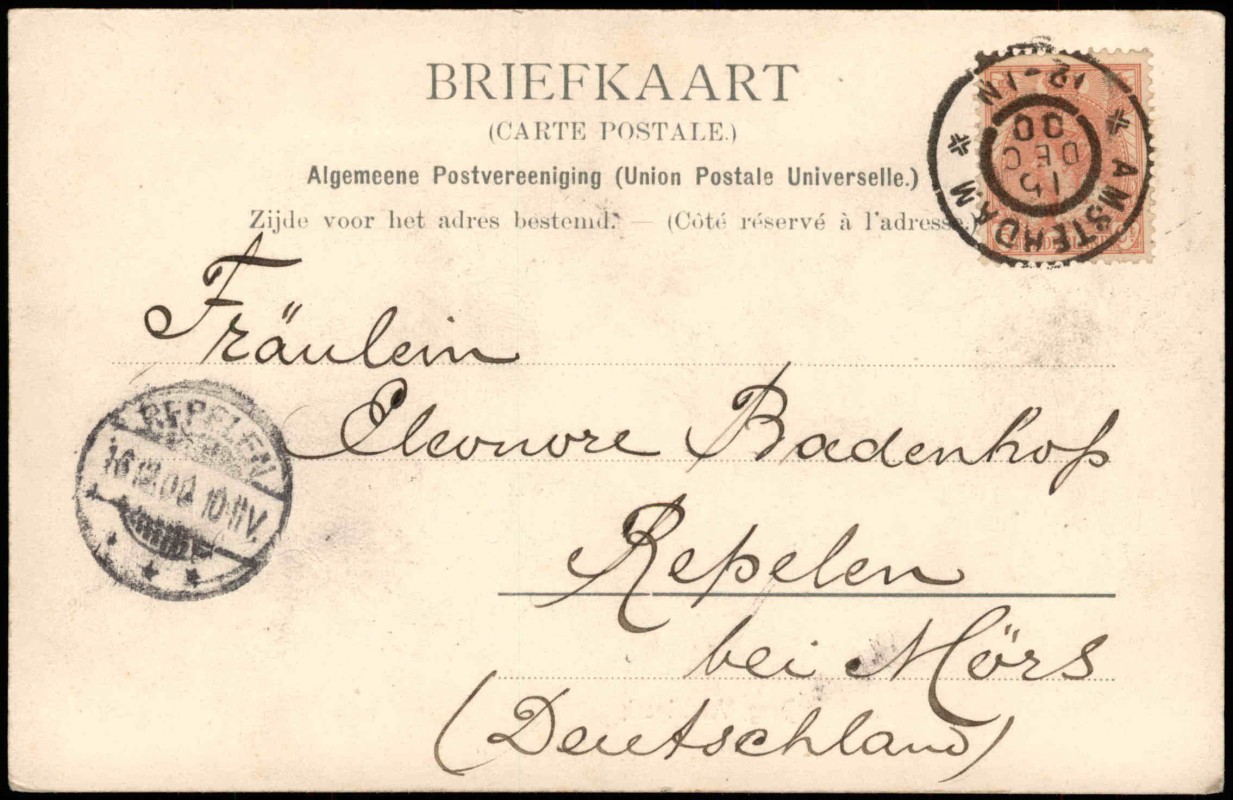 BRIEFKAART
(CARTE POSTALE.)
Algemeene Postvereeniging (Union Postale Universelle.)
Zijde voor het adres bestemd. — (Côté réservé à l'adresse.)
AMSTERDAM
15
DEC
00
12-1N
Fräulein
Eleonore Badenhop
Repelen
bei Mörs
(Deutschland)
REPELEN
16.12.00 10-11V.